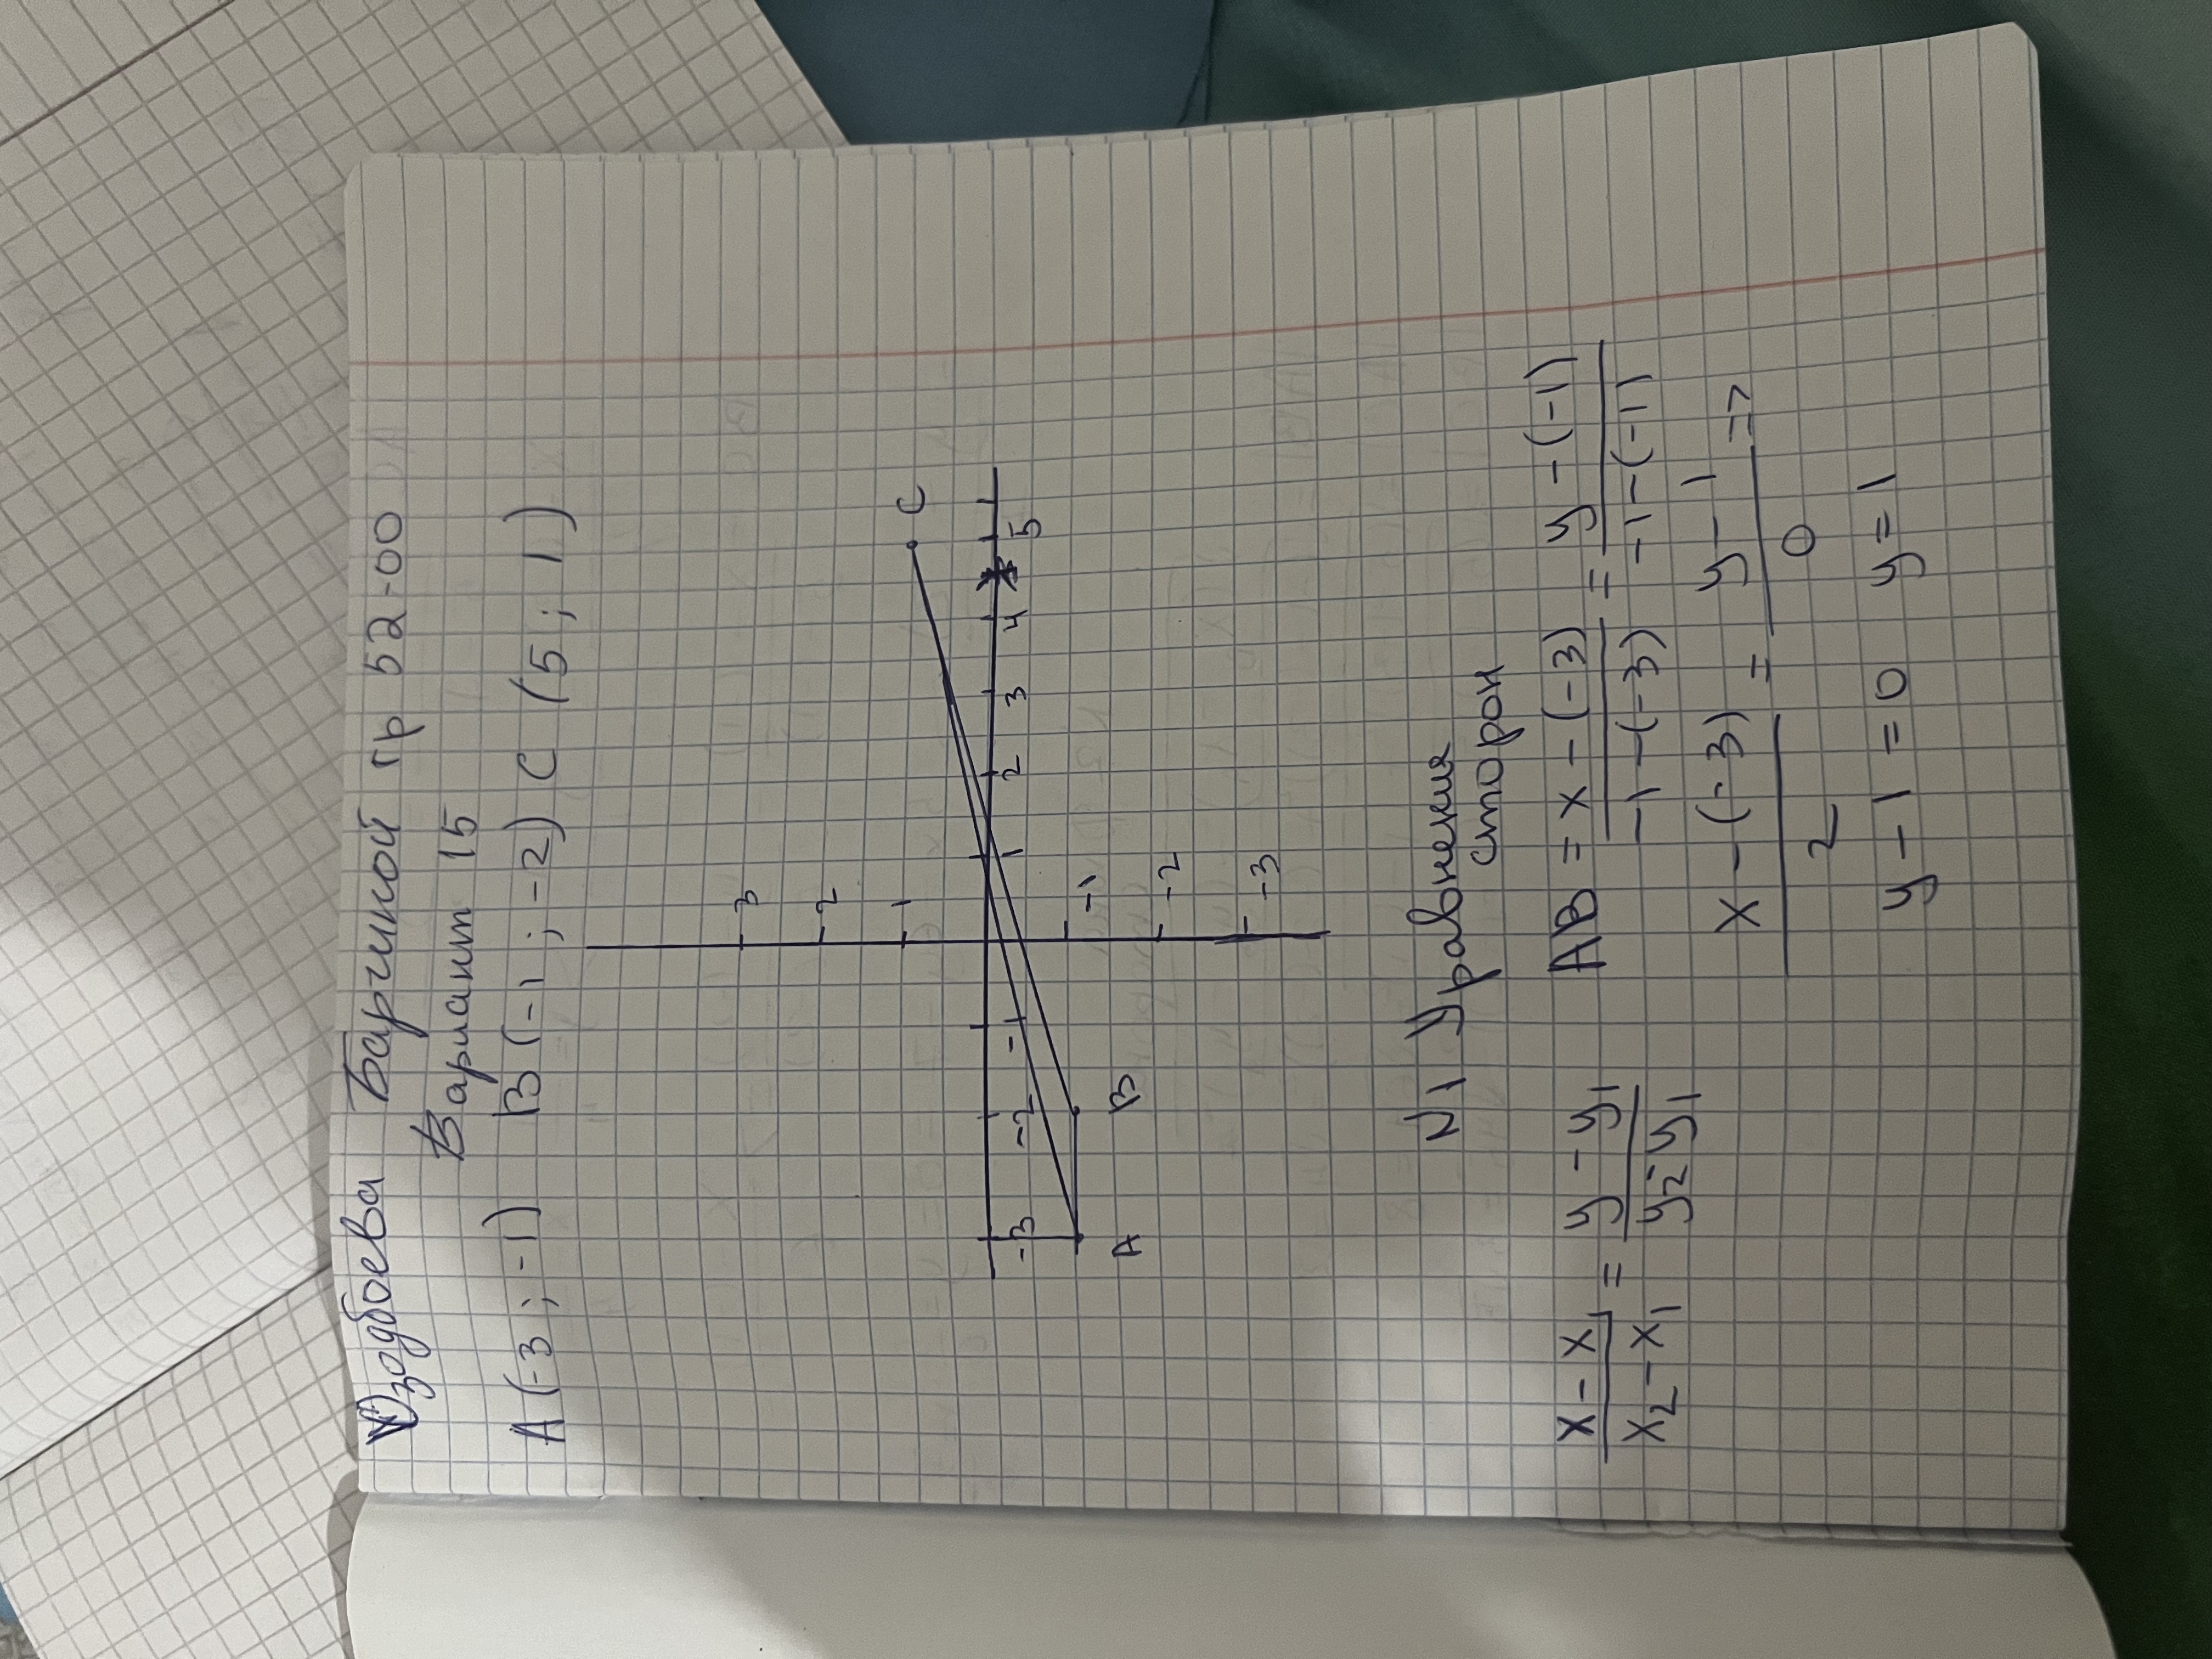 Озодбоева Барчиной гр 52-00
Вариант 15
A (-3 ; -1) B (-1 ; -2) C (5 ; 1)
3
2
1
C
-3 -2 -1 1 2 3 4 5
-1
A B
-2
-3
N1 Уравнения
сторон
x - x₁ / x₂ - x₁ = y - y₁ / y₂ - y₁ AB = x - (-3) / -1 - (-3) = y - (-1) / -1 - (-1)
x - (-3) / 2 = y - 1 / 0 =>
y - 1 = 0 y = 1